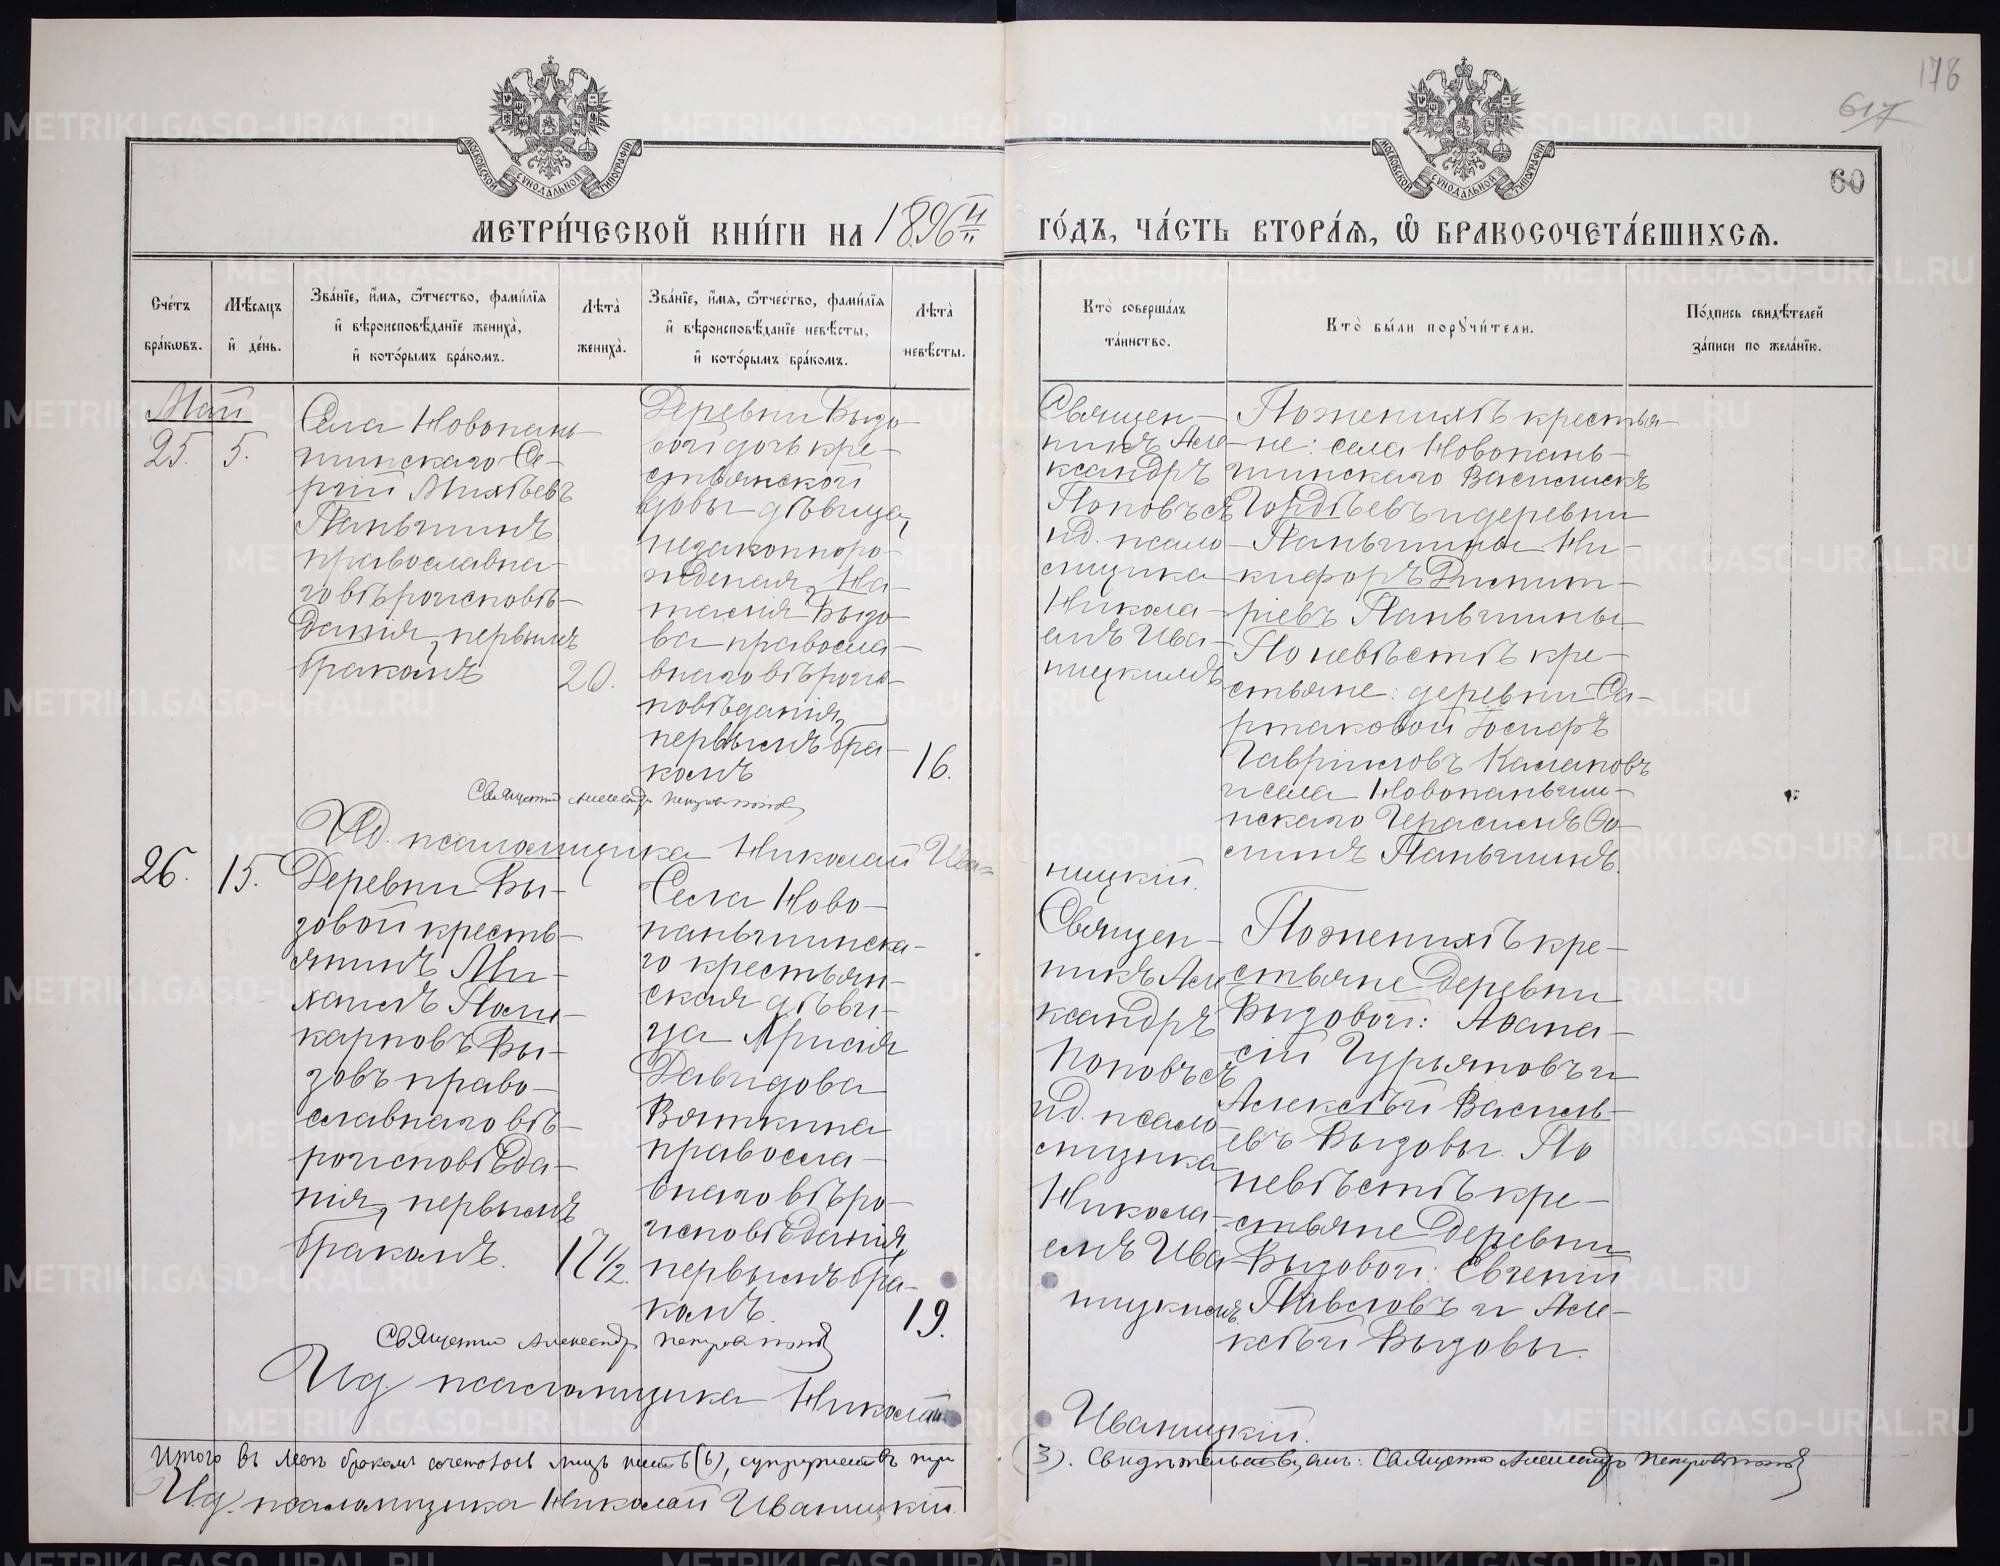 178
617
60
МОСКОВСКОЙ СУНОДАЛЬНОЙ ТИПОГРАФІИ
МОСКОВСКОЙ СУНОДАЛЬНОЙ ТИПОГРАФІИ
МЕТРИ́ЧЕСКОЙ КНИ́ГИ НА 1896й ГО́ДЪ, ЧА́СТЬ ВТОРА́Ѧ, Ѽ БРАКОСОЧЕТА́ВШИХСѦ.
Сче́тъ бра́кѡвъ.
Мѣ́сяцъ и҆ де́нь.
Зва́нїе, и҆́мѧ, ѻ҆́тчество, фами́лїѧ
и҆ вѣроисповѣ́данїе жениха̀,
и҆ кото́рымъ бра́комъ.
Лѣта̀ жениха̀.
Зва́нїе, и҆́мѧ, ѻ҆́тчество, фами́лїѧ
и҆ вѣроисповѣ́данїе невѣ́сты,
и҆ кото́рымъ бра́комъ.
Лѣта̀ невѣ́сты.
Кто̀ соверша́лъ
та́инство.
Кто̀ бы́ли порꙋчи́тели.
По́дпись свидѣ́телей
за́писи по жела́нїю.
Май
25.
5.
Села Новопань-
шинскаго Се-
ргій Михѣевъ
Паньшинъ
православна-
го вѣроисповѣ-
данія, первымъ
бракомъ
20.
Деревни Вызо-
вой дочь кре-
стьянской
вдовы дѣвица,
незаконноро-
жденая, На-
талія Вызо-
ва правосла-
внаго вѣроис-
повѣданія,
первымъ бра-
комъ
16.
Священ-
никъ Але-
ксандръ
Поповъ съ
и.д. псало-
мщика
Никола-
емъ Ива-
ницкимъ
По женихѣ крестья-
не: села Новопань-
шинскаго Василискъ
Гордѣевъ и деревни
Паньшины Ни-
кифоръ Димит-
ріевъ Паньшины
По невѣстѣ кре-
стьяне: деревни Са-
ртаковой Іосифъ
Гавріиловъ Калаковъ
и села Новопаньши-
нскаго Герасимъ Ѳо-
минъ Паньшинъ.
Священникъ Александръ Петровъ Поповъ
И.д. псаломщика Николай Ива-
ницкій.
26.
15.
Деревни Вы-
зовой кресть-
янинъ Ми-
хаилъ Поли-
карповъ Вы-
зовъ право-
славнаго вѣ-
роисповѣда-
нія, первымъ
бракомъ.
17½.
Села Ново-
паньшинска-
го крестьян-
ская дѣви-
ца Ирисія
Давидова
Вяткина
правосла-
внаго вѣро-
исповѣданія,
первымъ бра-
комъ.
19.
Священ-
никъ Але-
ксандръ
Поповъ съ
и.д. псало-
мщика
Никола-
емъ Ива-
ницкимъ.
По женихѣ кре-
стьяне деревни
Вызовой: Аѳана-
сій Гурьяновъ и
Алексѣй Василь-
евъ Вызовы. По
невѣстѣ кре-
стьяне деревни
Вызовой: Евгеній
Павловъ и Але-
ксѣй Вызовы.
Священникъ Александръ Петровъ Поповъ
И.д. псаломщика Николай
Иваницкій.
Итого въ маѣ бракомъ сочеталось лицъ шесть (6), супружествъ три
(3). Свидѣтельствуемъ: Священникъ Александръ Петровъ Поповъ
И.д. псаломщика Николай Иваницкій.
METRIKI.GASO-URAL.RU